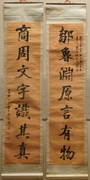 鄒魯淵原言有物
商周文字識其真